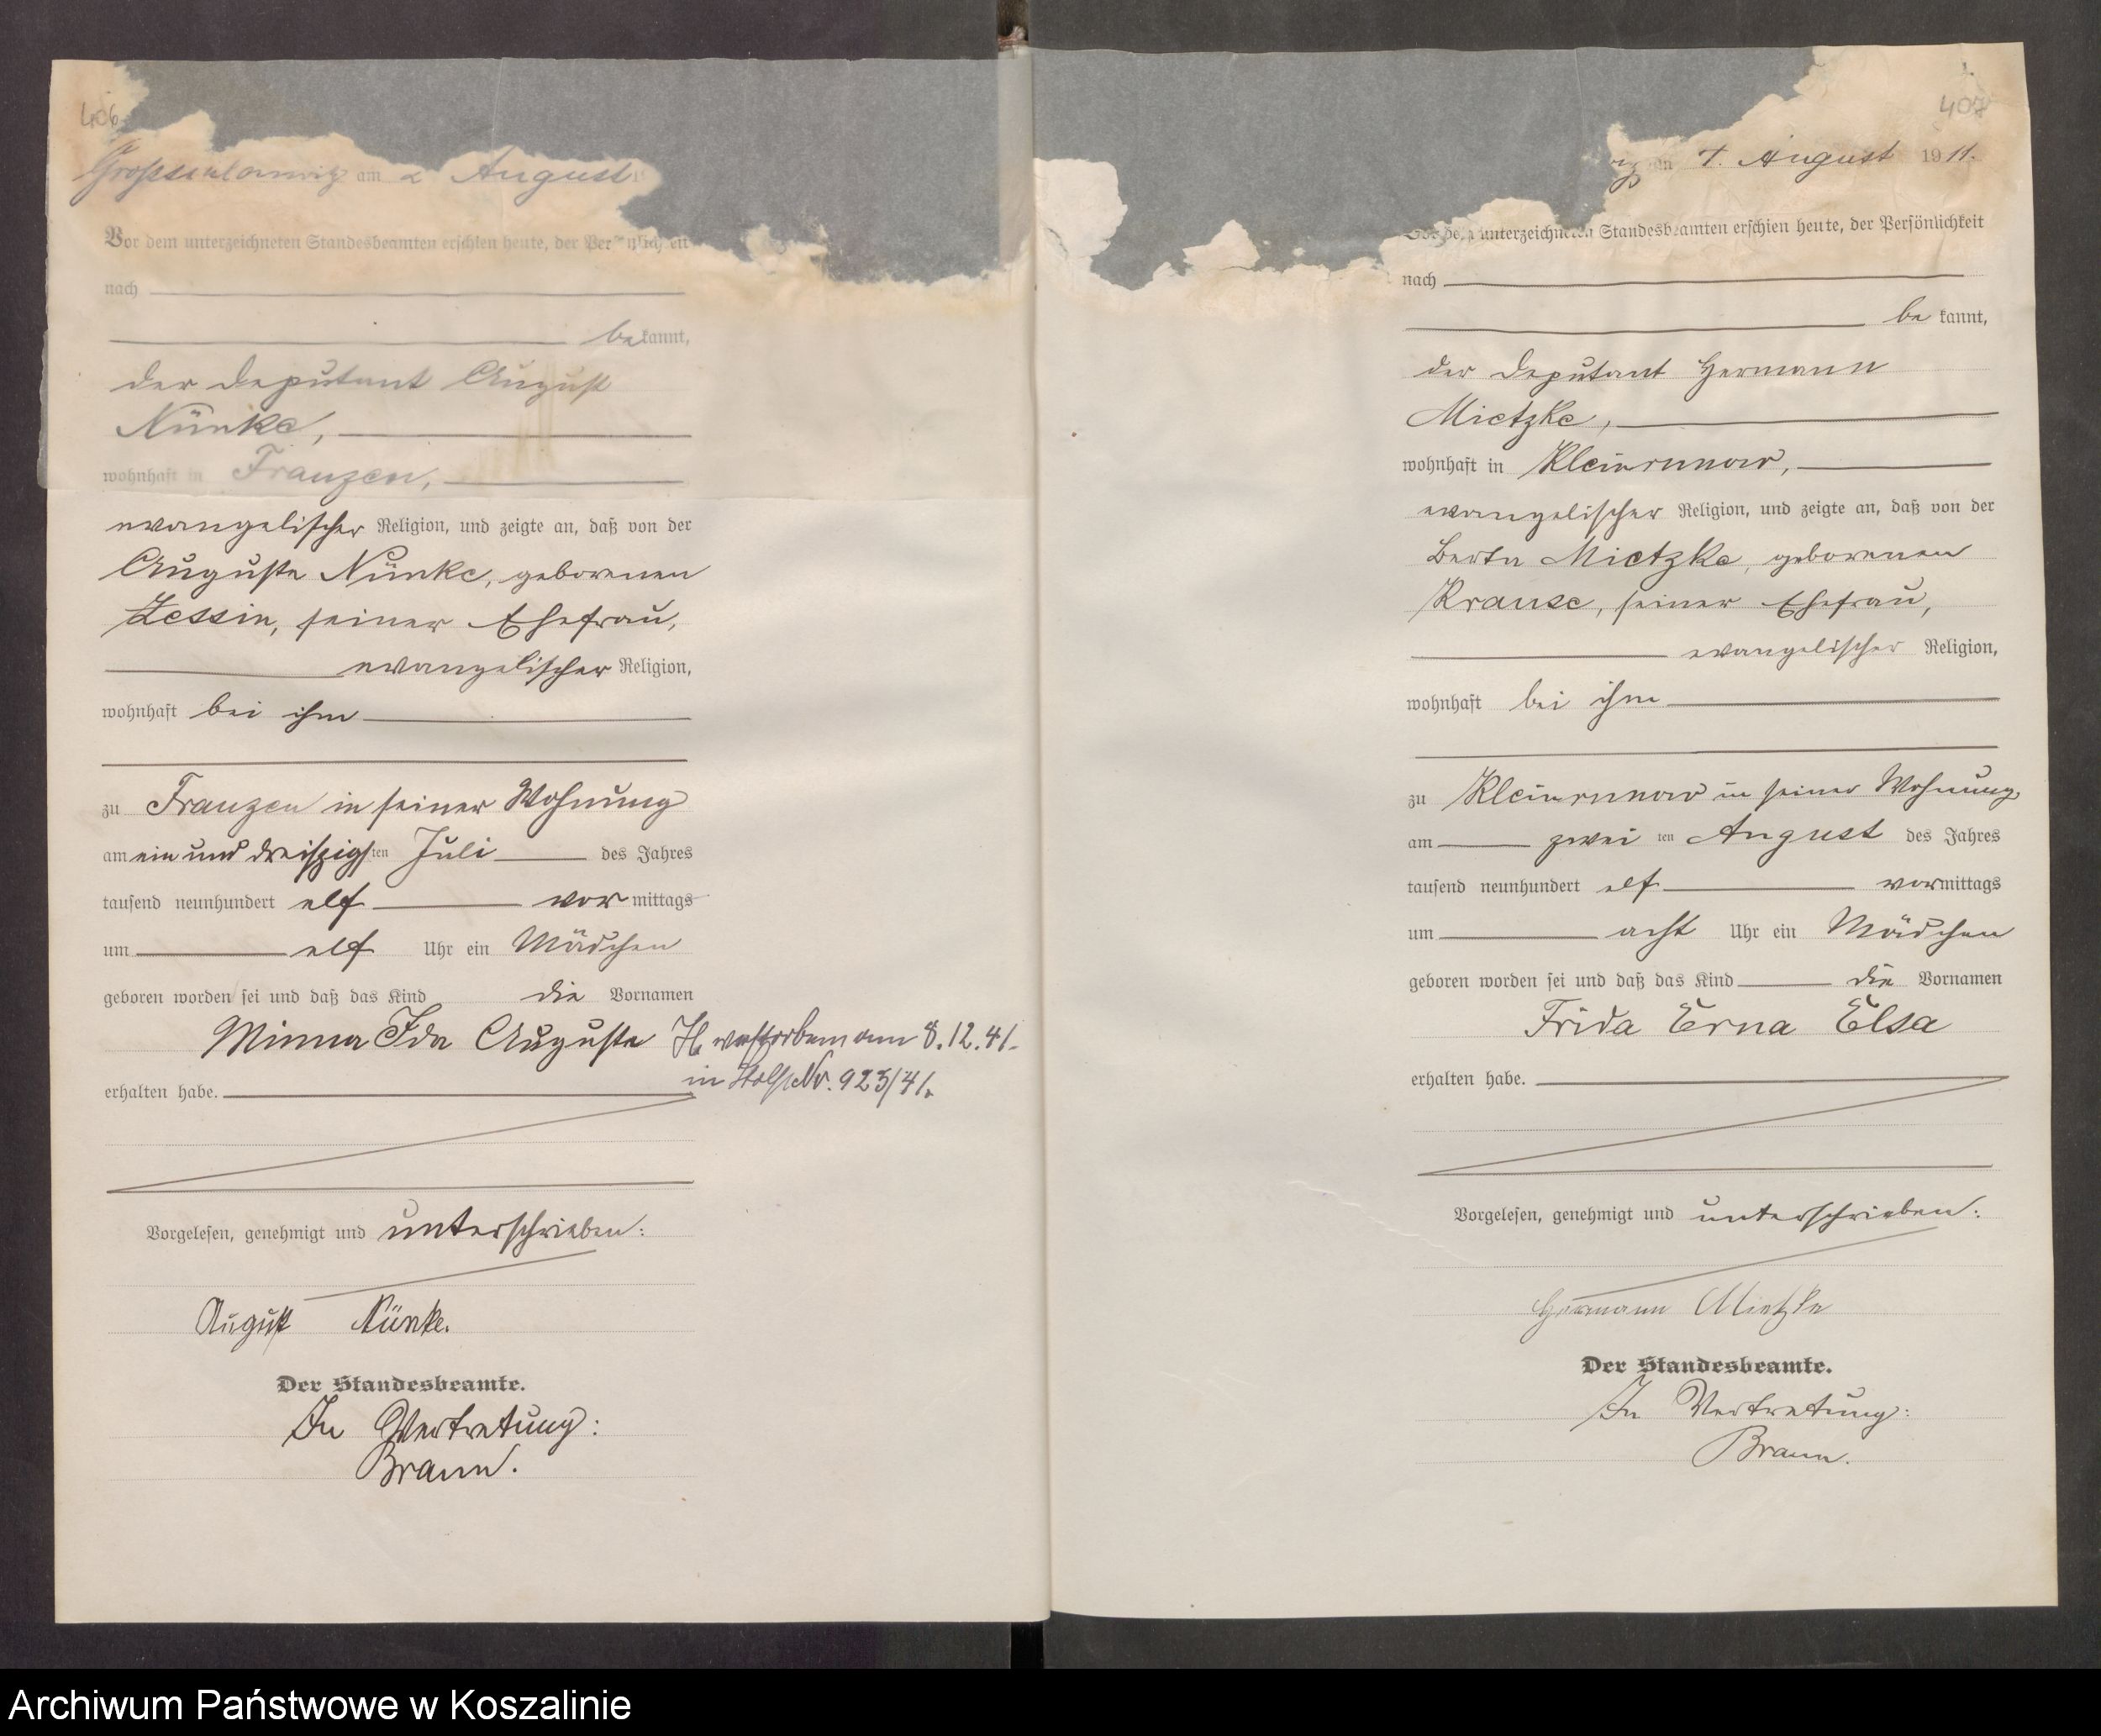 406
am 2 August
Vor dem unterzeichneten Standesbeamten erschien heute, der
nach
bekannt,
der Deputant August
Nünke,
wohnhaft in Franzen,
evangelischer Religion, und zeigte an, daß von der
Auguste Nünke, geborenen
Zessin, seiner Ehefrau,
evangelischer Religion,
wohnhaft bei ihm
zu Franzen in seiner Wohnung
am ein und dreiszigsten Juli des Jahres
tausend neunhundert elf vormittags
um elf Uhr ein Mädchen
geboren worden sei und daß das Kind die Vornamen
Minna Ida Auguste
H. verstorben am 8.12.41.
in Stolp Nr. 923/41.
erhalten habe.
Vorgelesen, genehmigt und unterschrieben:
August Nünke.
Der Standesbeamte.
In Vertretung:
Braun.
407
August 1911.
unterzeichneten Standesbeamten erschien heute, der Persönlichkeit
nach
bekannt,
der Deputant Hermann
Mietzke,
wohnhaft in Kleinrunow,
evangelischer Religion, und zeigte an, daß von der
Berta Mietzke, geborenen
Krause, seiner Ehefrau,
evangelischer Religion,
wohnhaft bei ihm
zu Kleinrunow in seiner Wohnung
am zweiten August des Jahres
tausend neunhundert elf vormittags
um acht Uhr ein Mädchen
geboren worden sei und daß das Kind die Vornamen
Frida Erna Elsa
erhalten habe.
Vorgelesen, genehmigt und unterschrieben:
Hermann Mietzke
Der Standesbeamte.
In Vertretung:
Braun.
Archiwum Państwowe w Koszalinie